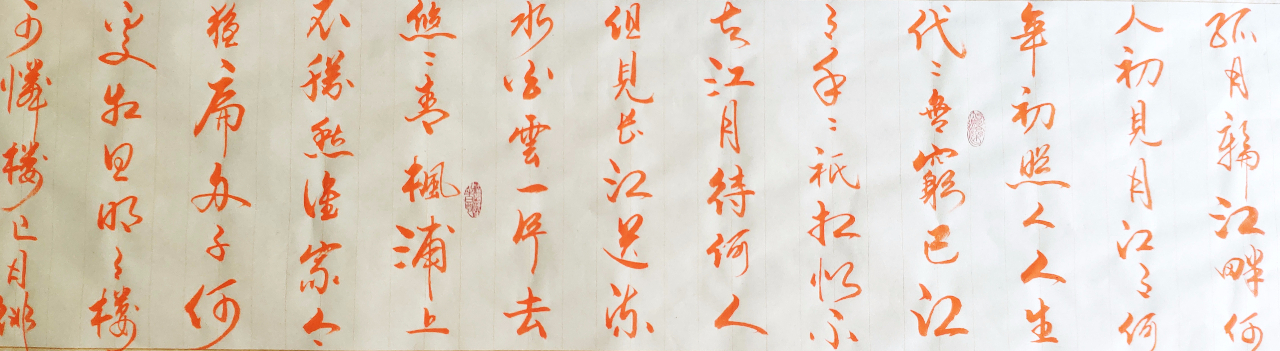 孤月輪江畔何
人初見月江月何
年初照人人生
代々無窮已江
月年々祇相似不
知江月待何人
但見長江送流
水白雲一片去
悠々青楓浦上
不勝愁誰家今
夜扁舟子何
處相思明月樓
可憐樓上月徘